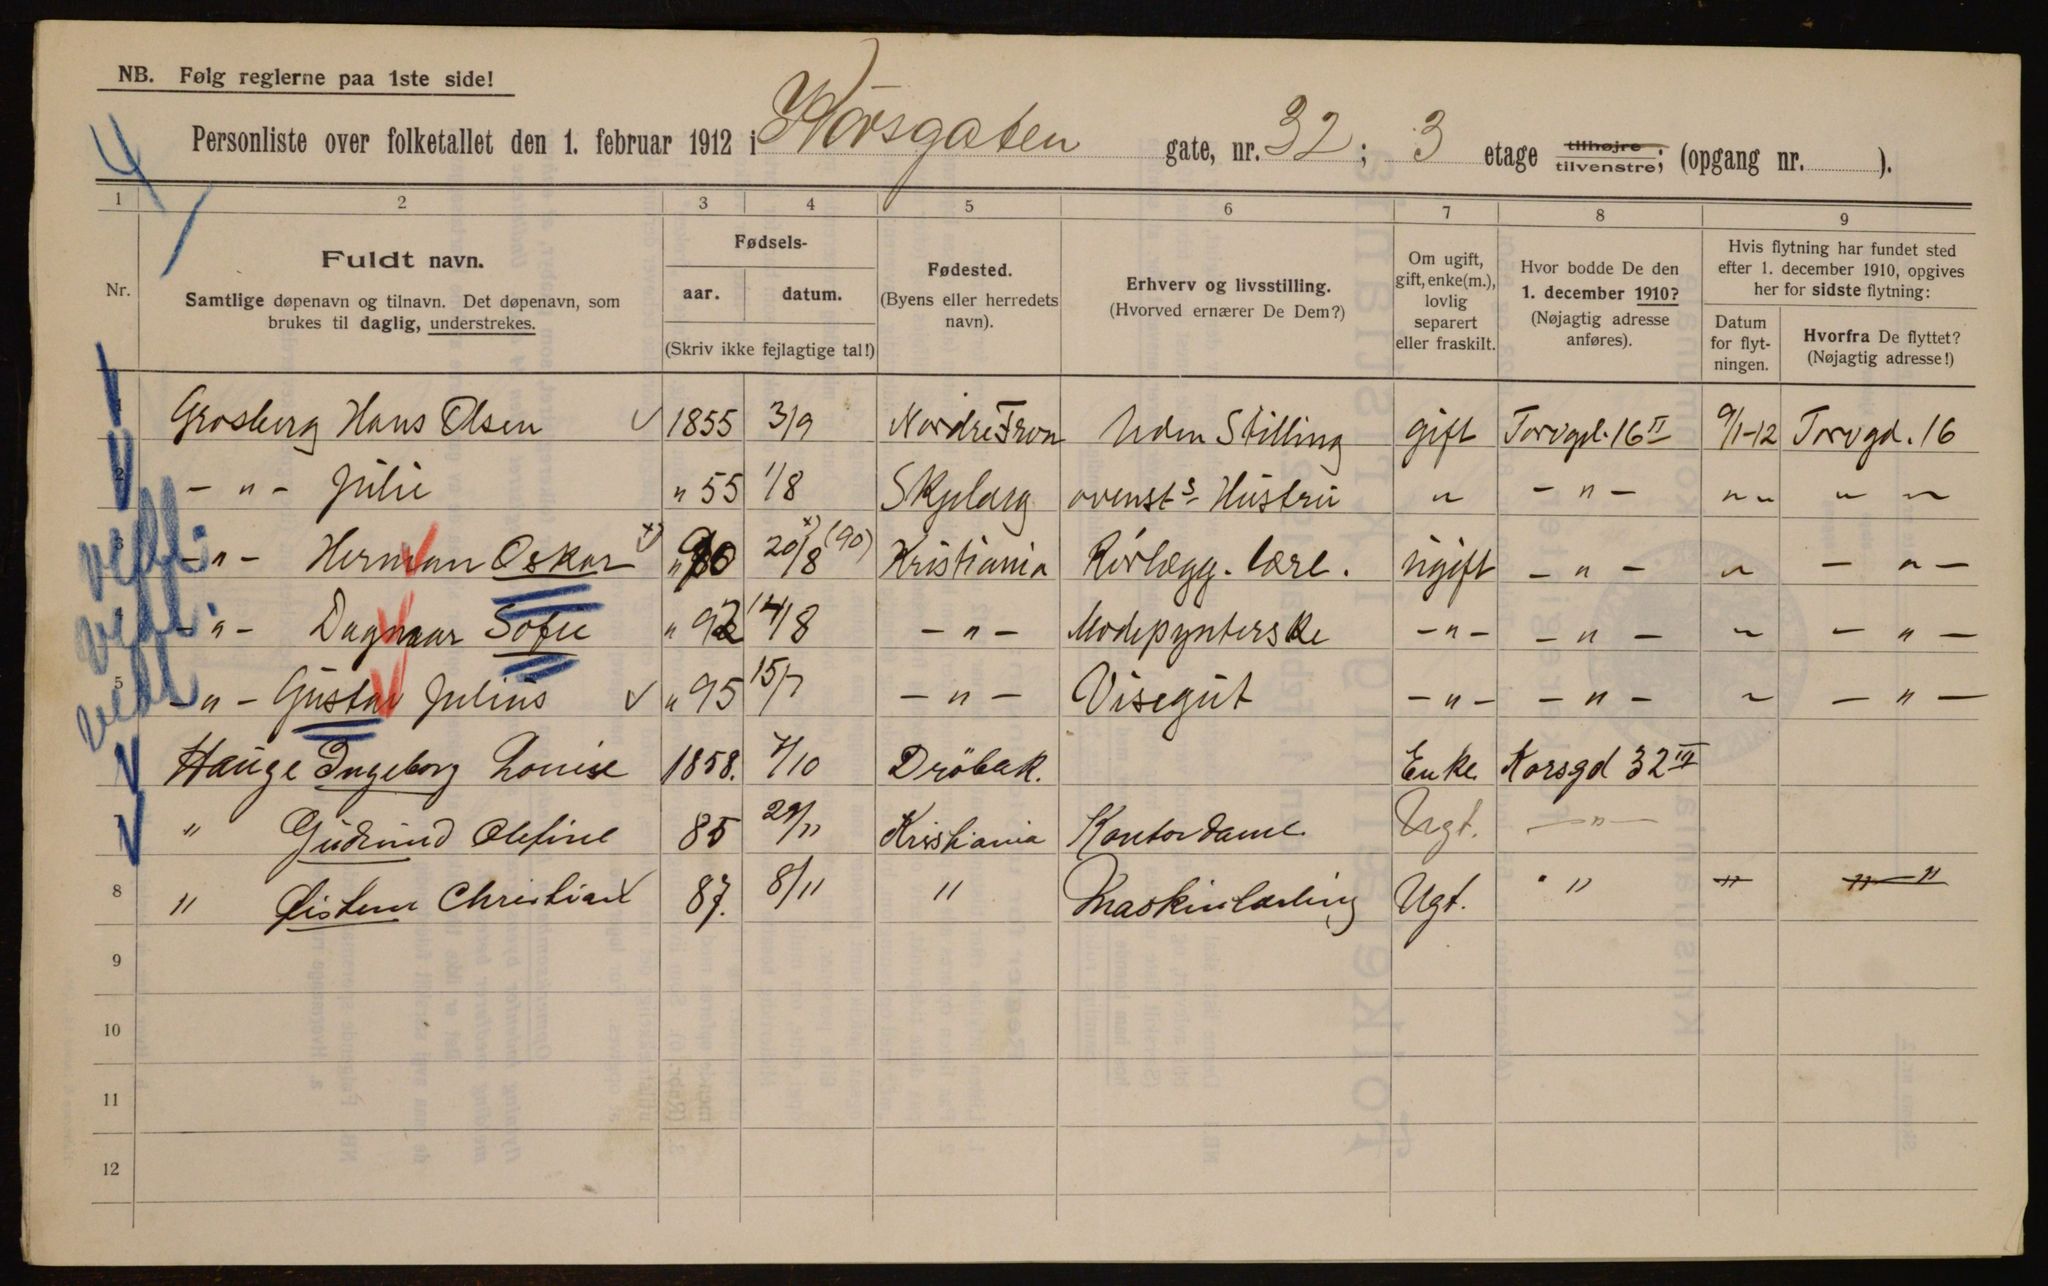 NB. Følg reglerne paa 1ste side!
Personliste over folketallet den 1. februar 1912 i Korsgaten gate, nr. 32; 3 etage tilhøjre tilvenstre; (opgang nr. ).
1 2 3 4 5 6 7 8 9
Nr.
Fuldt navn.
Samtlige døpenavn og tilnavn. Det døpenavn, som
brukes til daglig, understrekes.
Fødsels-
aar. datum.
(Skriv ikke fejlagtige tal!)
Fødested.
(Byens eller herredets
navn).
Erhverv og livsstilling.
(Hvorved ernærer De Dem?)
Om ugift,
gift, enke(m.),
lovlig
separert
eller fraskilt.
Hvor bodde De den
1. december 1910?
(Nøjagtig adresse
anføres).
Hvis flytning har fundet sted
efter 1. december 1910, opgives
her for sidste flytning:
Datum
for flyt-
ningen.
Hvorfra De flyttet?
(Nøjagtig adresse!)
Grosberg Hans Olsen 1855 3/9 Nordre Fron Uden Stilling gift Torvgd. 16 II 9/1-12 Torvgd. 16
2 - " - Julie " 55 1/8 ovenst s Hustru " - " - " " " "
3 - " - Herman Oskar x) " 90 20/8 x) (90) Kristiania Rørlægg. lærl. ugift - " - " - " -
4 - " - Dagmar Sofie " 92 14/8 - " - Modepynterske - " - - " - " - " -
5 - " - Gustav Julius " 95 15/7 - " - Visegut - " - - " - " - " -
Hauge Ingeborg Louise 1858. 7/10 Drøbak. Enke Korsgd 32 III
" Gudrund Olefine 85 29/11 Kristiania Kontordame Ugt. - " -
8 " Christian 87. 8/11 " Maskinlærling Ugt. " " " "
9
10
11
12